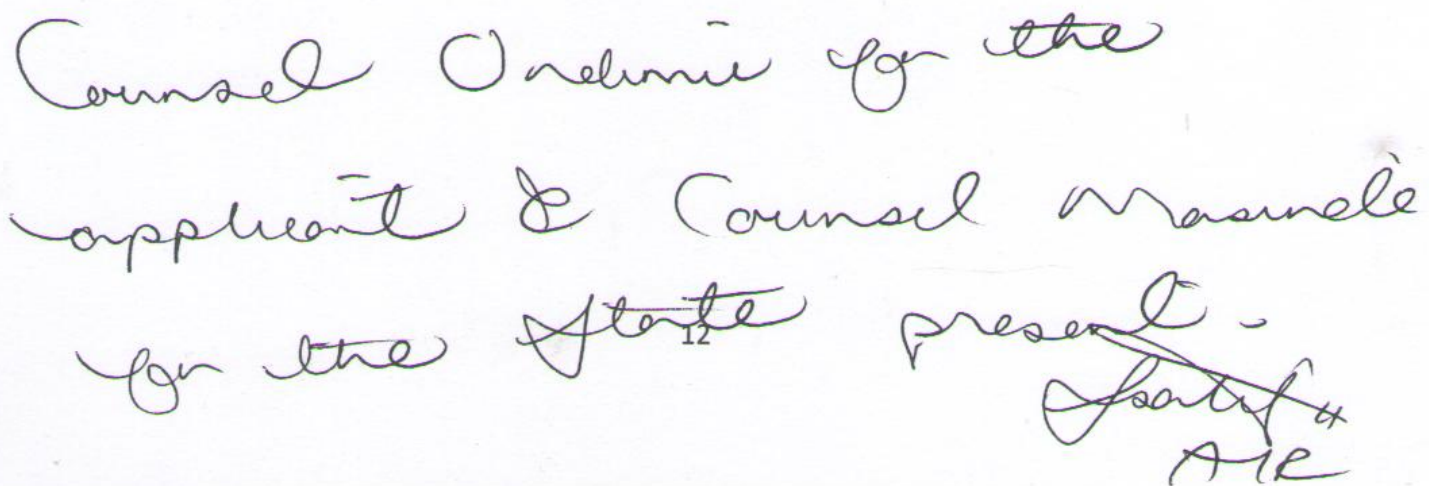 Counsel Ondimu for the
applicant & Counsel Masinde
for the State present.
12